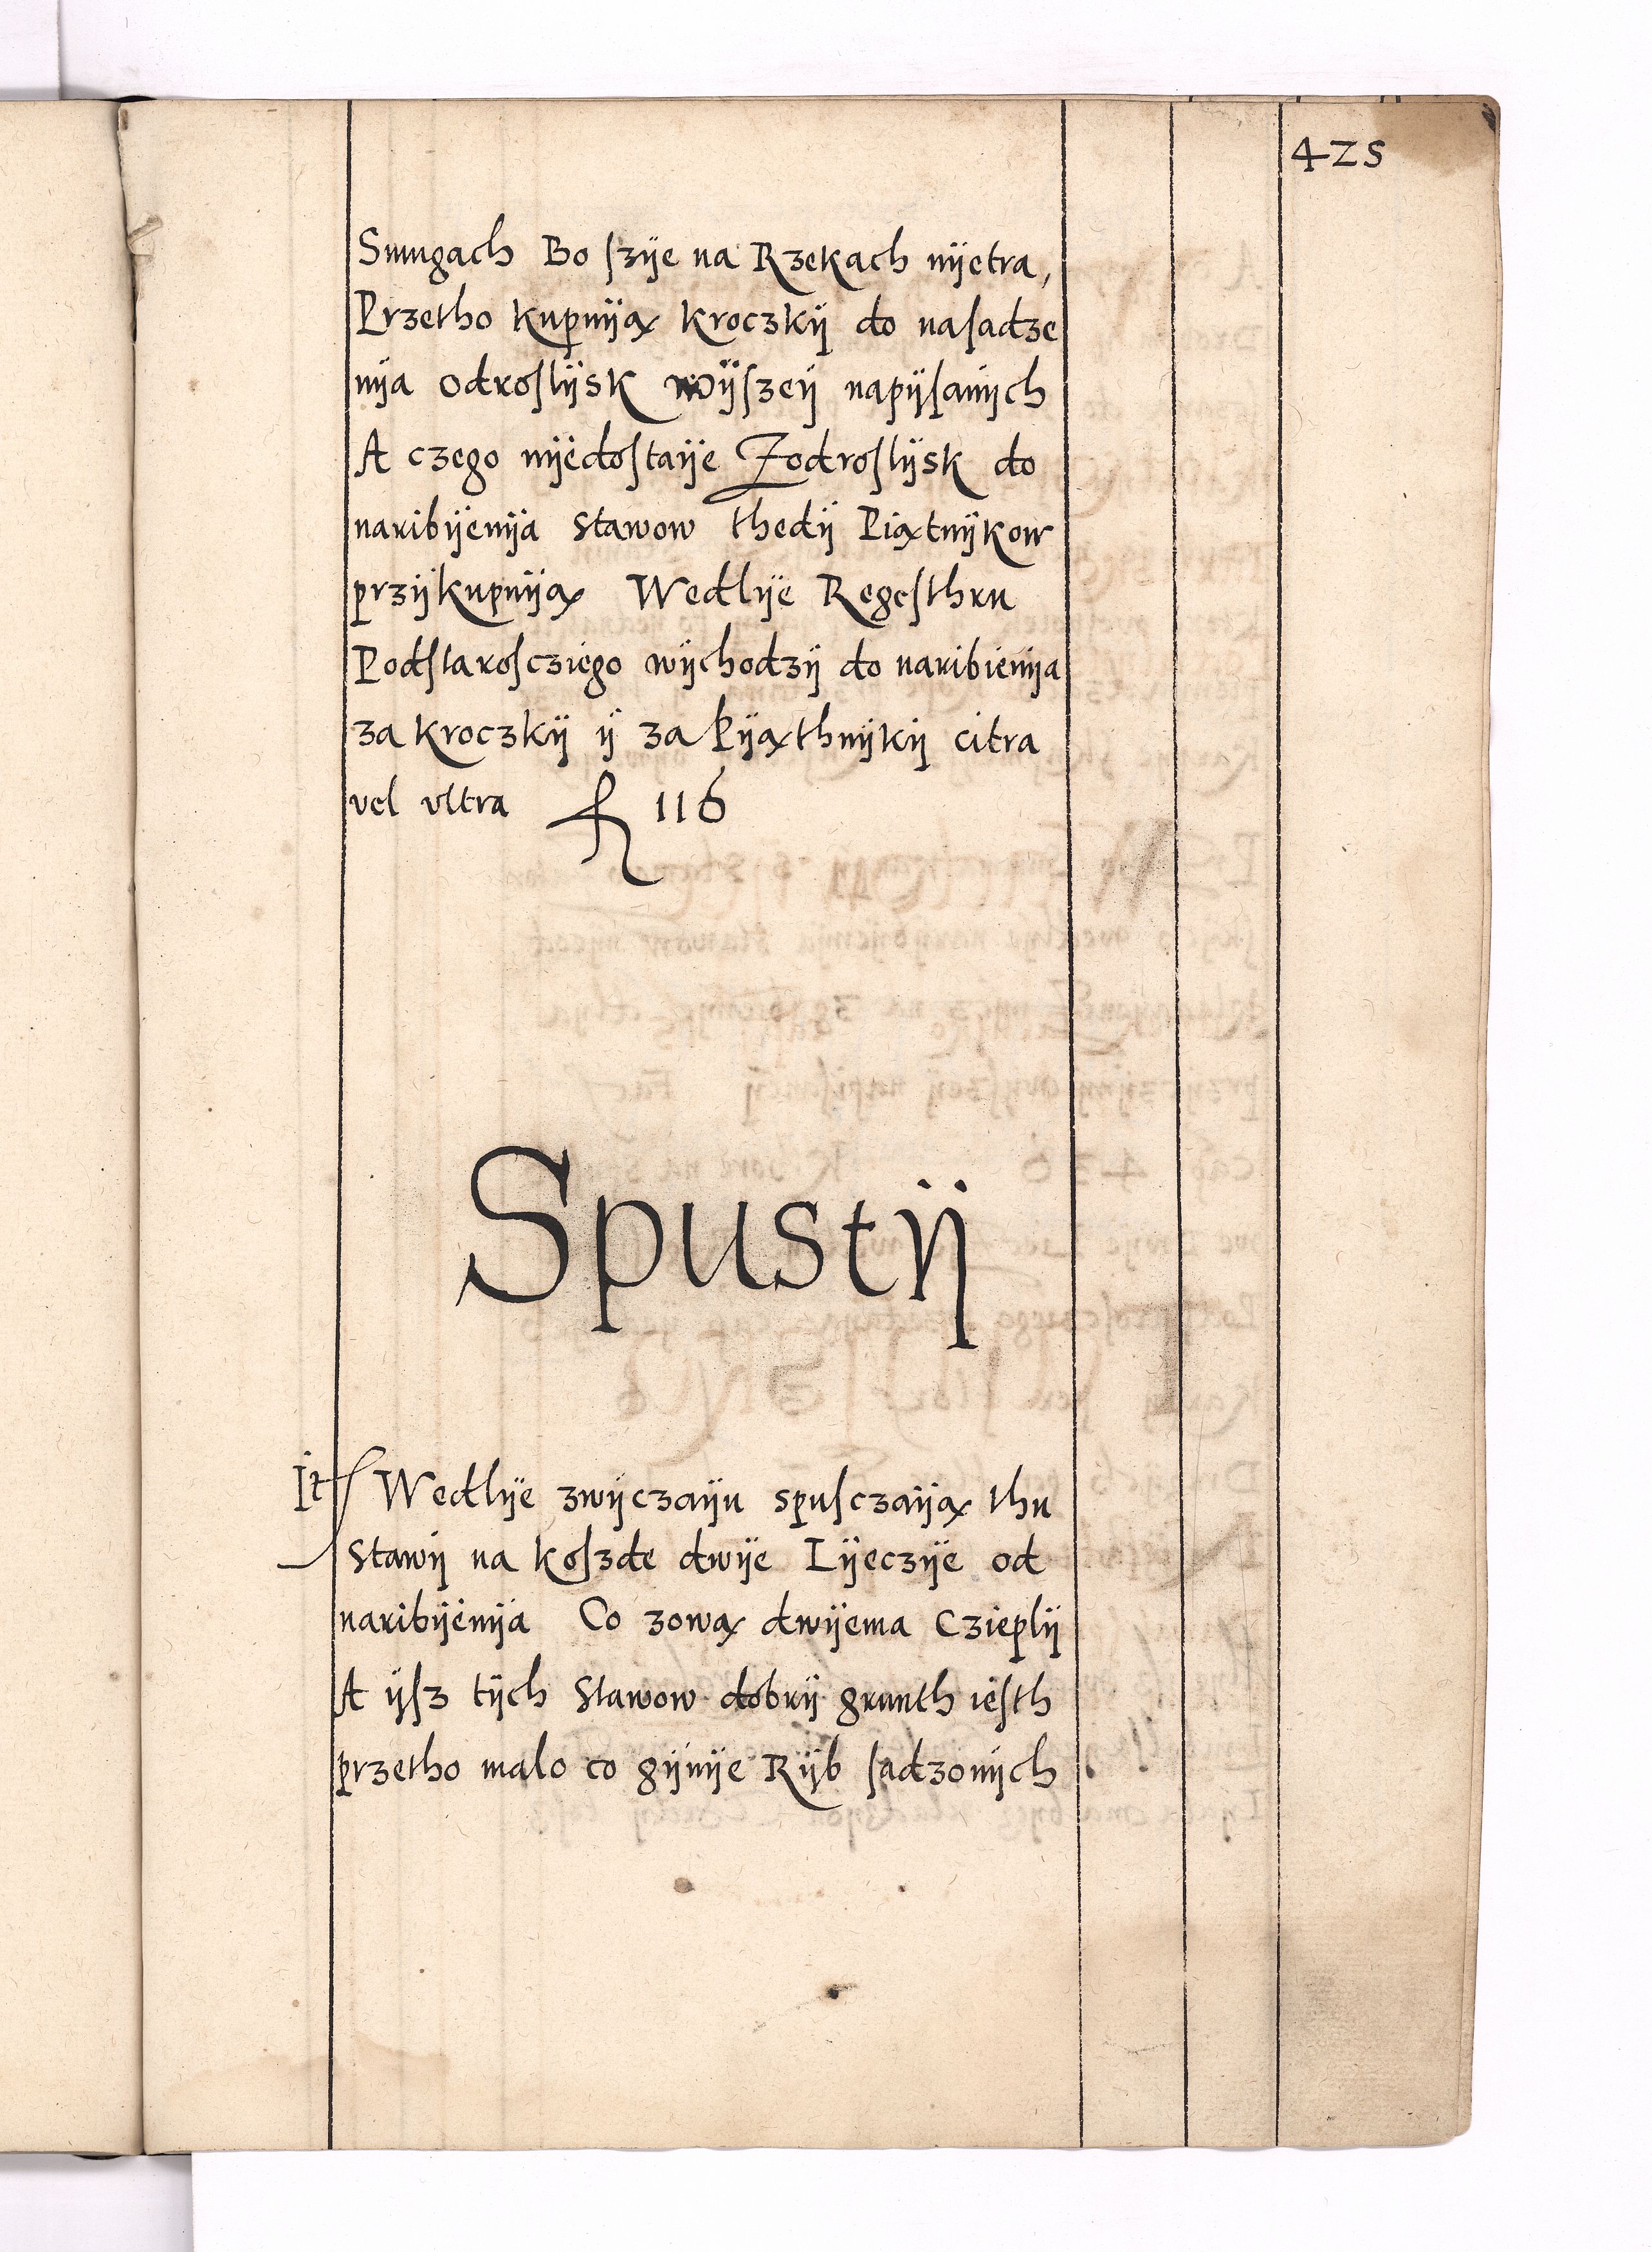 425
Smugach Bo ſzÿe na Rzekach nÿetra,
Przetho kupuÿą kroczkÿ do naſadze
nÿa odroſlÿsk wÿſzeÿ napÿſanÿch
A czego nÿedoſtaÿe Zodroſlÿsk do
naribÿenÿa stawow thedÿ Piątnÿkow
przÿkupuÿą Wedlÿe Regeſthru
Podſtaroſcziego wÿchodzÿ do naribienÿa
za kroczkÿ ÿ za Pÿąthnÿkÿ citra
vel vltra fl 116
Spustÿ
It Wedlÿe zwÿczaÿu spuſczaÿą thu
Stawÿ na koſzde dwÿe Lÿeczÿe od
naribÿenÿa Co zową dwÿema Czieplÿ
A ÿſz tÿch Stawow dobrÿ grunth ieſth
przetho malo co gÿnÿe Rÿb ſadzonÿch